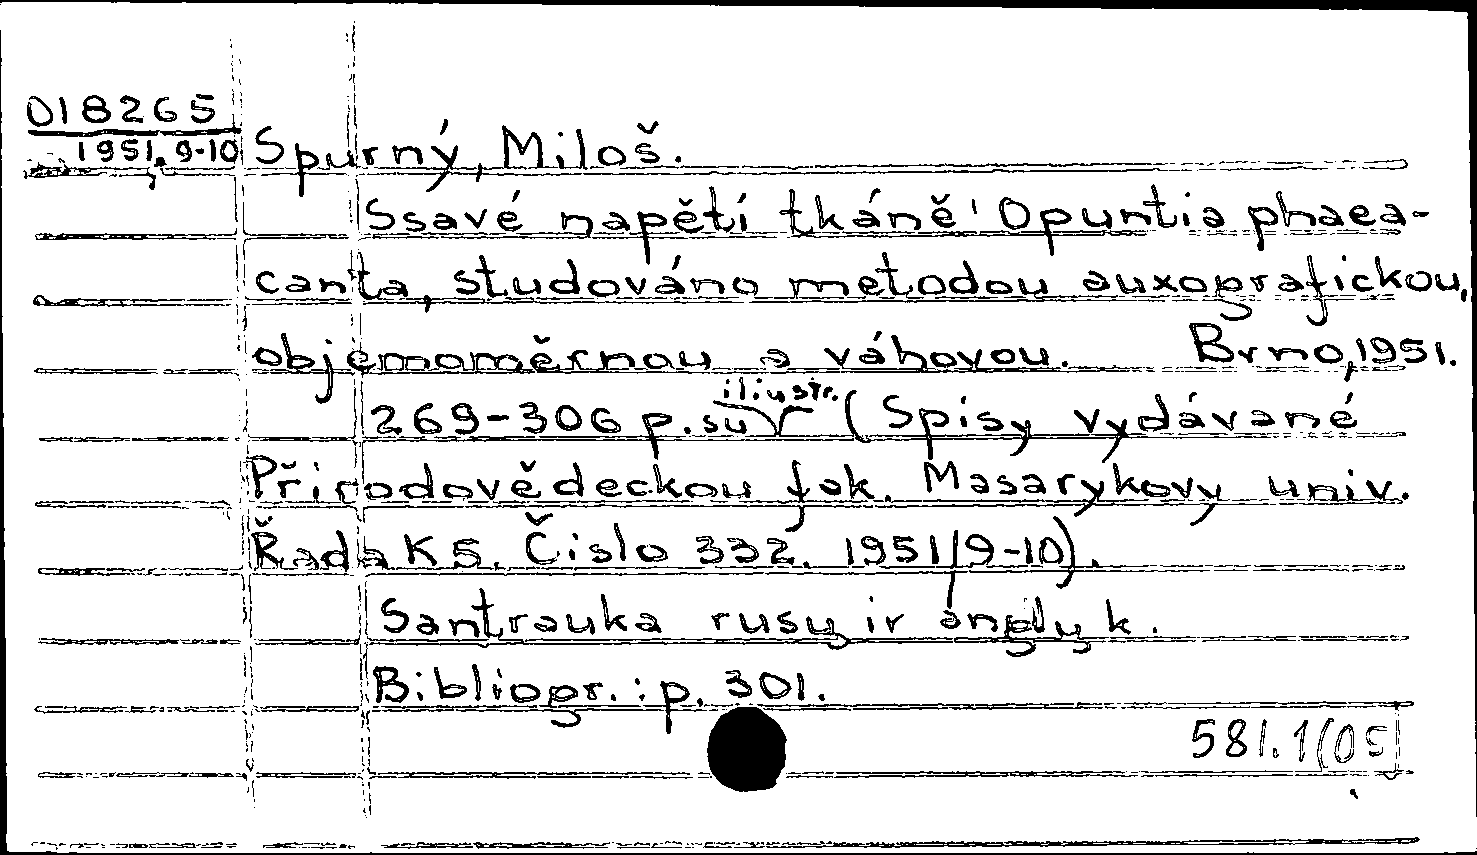 018265
1951, 9-10 Spurný, Miloš.
Ssavé napětí tkáně' Opuntia phaea-
canta, studováno metodou auxografickou,
objemoměrnou a váhovou. Brno, 1951.
269-306 p. su iliustr. (Spisy vydávané
Přirodovědeckou fak. Masarykovy univ.
Řada K5. Čislo 332. 1951/9-10).
Santrauka rusų ir anglų k.
Bibliogr.: p. 301.
581.1(05)